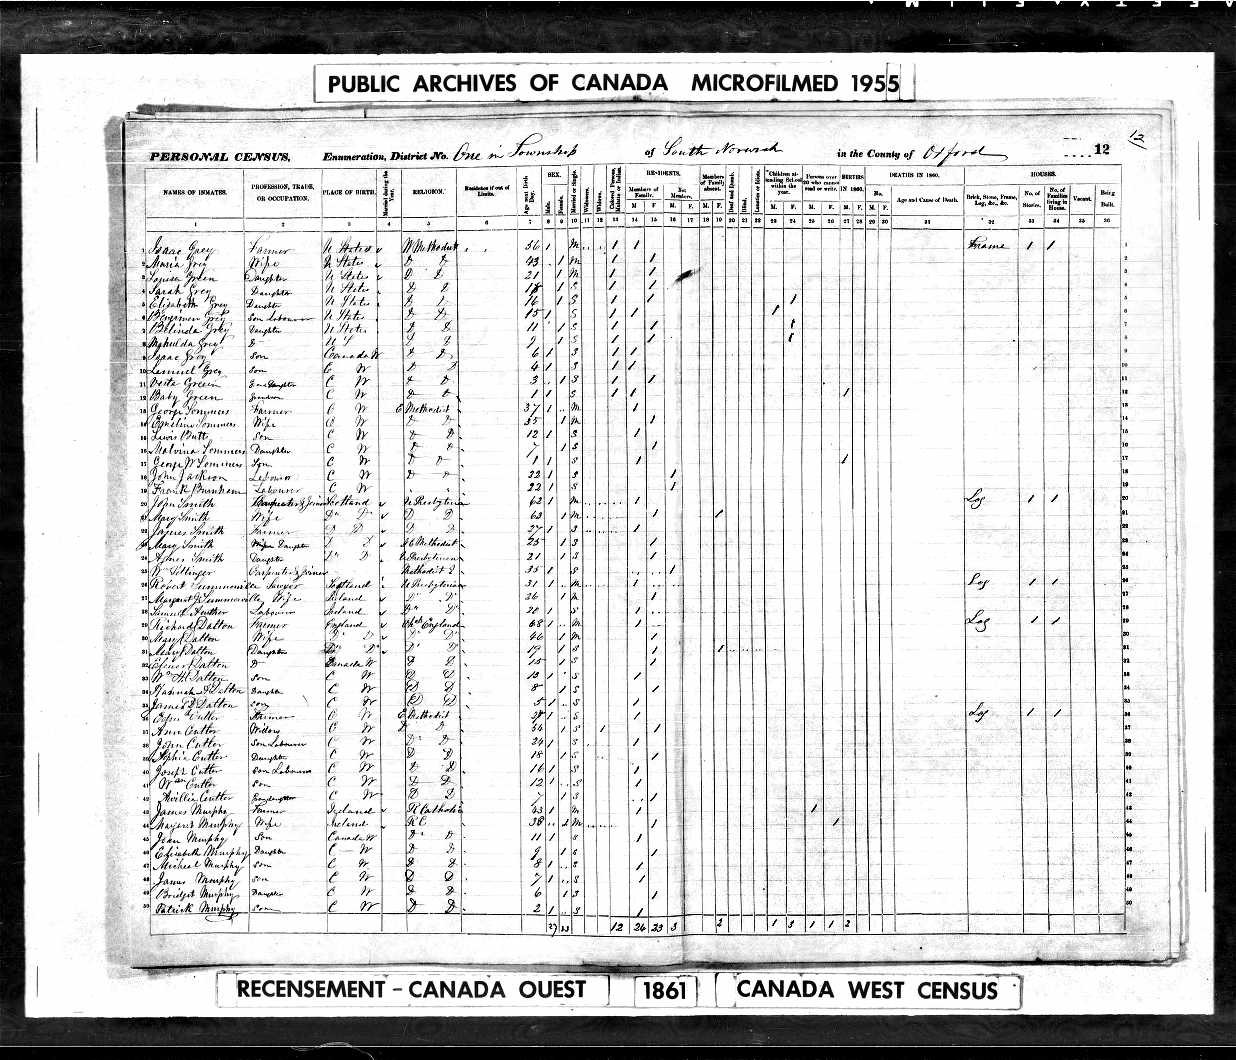 PUBLIC ARCHIVES OF CANADA MICROFILMED 1955
12
PERSONAL CENSUS, Enumeration, District No. One in Township of South Norwich in the County of Oxford 12
NAMES OF INMATES. PROFESSION, TRADE, OR OCCUPATION. PLACE OF BIRTH. Married during the Year. RELIGION. Residence if out of Limits. Age next Birth Day. SEX. Male. Female. Married or Single. Widowers. Widows. Colored Persons, Mulatto or Indian. RESIDENTS. Members of Family. Not Members. Members of Family absent. Deaf and Dumb. Blind. Lunatics or Idiots. Children attending School within the year. Persons over 20 who cannot read or write. BIRTHS IN 1860. DEATHS IN 1860. No. Age and Cause of Death. HOUSES. Brick, Stone, Frame, Log, &c., &c. No. of Stories. No. of Families living in House. Vacant. Being Built.
M F M. F. M. F. M. F. M. F. M. F. M. F.
1 2 3 4 5 6 7 8 9 10 11 12 13 14 15 16 17 18 19 20 21 22 23 24 25 26 27 28 29 30 31 32 33 34 35 36
1 Isaac Grey Farmer U States W Methodist 56 1 M 1 1 Frame 1 1
2 Maria Grey Wife U States D D 43 1 M 1 1
3 Louisa Green Daughter U States D D 21 1 M 1 1
4 Sarah Grey Daughter U States D D 18 1 S 1 1
5 Elizabeth Grey Daughter U States D D 16 1 S 1 1 1
6 Benjimen Grey Son Labourer U States D D 15 1 S 1 1 1
7 Belinda Grey Daughter U States D D 11 1 S 1 1 1
8 Grey D U S D D 9 1 S 1 1 1
9 Isaac Grey Son Canada W D D 6 1 S 1 1
10 Lemuel Grey Son C W D D 4 1 S 1 1
11 Green Daughter C W D D 3 1 S 1 1
12 Baby Green Grandson C W D D 1 1 S 1 1 1
13 George Sommers Farmer C W E Methodist 37 1 M 1
14 Emeline Sommers Wife C W D D 35 1 M 1
15 Lewis Butt Son C W D D 12 1 S 1
16 Malvina Sommers Daughter C W D D 7 1 S 1
17 George W Sommers Son C W D D 1 1 S 1 1
18 John Jackson Laborer C W D D 22 1 S 1
19 Frank Burnham Labourer C W 22 1 S 1
20 John Smith Carpenter & Joiner Scotland U Presbyterian 62 1 M 1 Log 1 1
21 Mary Smith Wife Do D D D 63 1 M 1 1
22 James Smith Farmer D D D D 27 1 1
23 Mary Smith Daughter D Methodist 25 1 S 1
24 Agnes Smith Daughter Do D U Presbyterian 21 1 S 1
25 Carpenter & Joiner Methodist 35 1 S 1
26 Robert Summerville Sawyer Scotland U Presbyterian 31 1 M 1 Log 1 1
27 Margaret J Summerville Wife Ireland D D 26 1 M 1
28 Samuel Labourer Ireland Do D 20 1 S 1
29 Richard Dalton Farmer England Ch of England 68 1 M 1 Log 1 1
30 Mary Dalton Wife Do D D D 46 1 M 1
31 Mary Dalton Daughter Do D D D 19 1 S 1 1
32 Dalton D Canada W D D 15 1 S 1
33 Wm H Dalton Son C W D D 13 1 S 1
34 Hannah Dalton Daughter C W D D 8 1 S 1
35 James Dalton Son C W D D 5 1 S 1
36 Cutler Farmer C W E Methodist 1 S 1 Log 1 1
37 Ann Cutler Widow C W D D 54 1 S 1 1
38 John Cutler Son Labourer C W D D 24 1 S 1
39 Sophia Cutler Daughter C W D D 18 1 S 1
40 Joseph Cutler Son Labourer C W D D 16 1 S 1
41 Wm Cutler Son C W D D 12 1 S 1
42 Cutler C W D D 7 1 S 1
43 James Murphy Farmer Ireland R Catholic 43 1 M 1 1
44 Margaret Murphy Wife Ireland R C 38 M 1 1
45 John Murphy Son Canada W D D 11 1 S 1
46 Elizabeth Murphy Daughter C W D D 9 1 S 1
47 Micheal Murphy Son C W D D 8 1 S 1
48 James Murphy Son C W D D 7 1 S 1
49 Bridget Murphy Daughter C W D D 6 1 S 1
50 Patrick Murphy Son C W D D 2 1 S 1
27 23 12 26 23 3 2 1 3 1 1 2
RECENSEMENT – CANADA OUEST 1861 CANADA WEST CENSUS